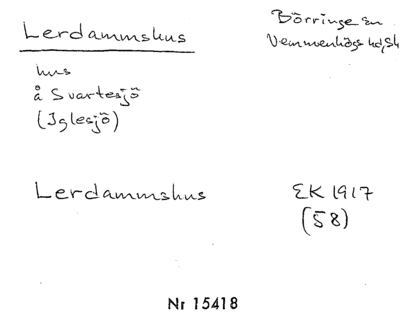 Lerdammshus
Börringe sn
Vemmenhögs hd, Sk
hus
å Svartesjö
(Iglesjö)
Lerdammshus
EK 1917
(58)
Nr 15418